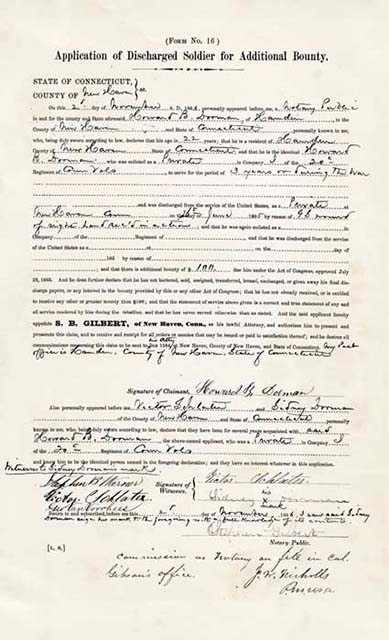 (FORM No. 16)
Application of Discharged Soldier for Additional Bounty.
STATE OF CONNECTICUT,
COUNTY OF New Haven } ss.
On this 2d day of November A. D. 1866, personally appeared before me, a Notary Public
in and for the county and State aforesaid, Howard B. Dorman, of Hamden, in the
County of New Haven, and State of Connecticut, personally known to me,
who, being duly sworn according to law, declares that his age is 22 years; that he is a resident of Hamden
County of New Haven, State of Connecticut, and that he is the identical Howard
B. Dorman who was enlisted as a Private in Company I of the 20th
Regiment of Conn Vols to serve for the period of 3 years or during the war
and was discharged from the service of the United States, as a Private at
New Haven Conn on June 1865 by reason of wound
of right hand rec'd in action, and that he was again enlisted as
in Company of the Regiment of and that he was discharged from the service
of the United States as a at on the day of
186 by reason of
and that there is additional bounty of $100 due him under the Act of Congress, approved July
28, 1866. And he does further declare that he has not bartered, sold, assigned, transferred, loaned, exchanged, or given away his final discharge papers, or any interest in the bounty provided by this or any other Act of Congress; that he has not already received, or is entitled
to receive any other or greater bounty than $100; and that the statement of service above given is a correct and true statement of any and
all service rendered by him during the rebellion, and that he has never served otherwise than as stated. And the said applicant hereby
appoints S. B. GILBERT, of New Haven, Conn., as his lawful Attorney, and authorizes him to present and
prosecute this claim, and to receive and receipt for all orders or monies that may be issued or paid in satisfaction thereof; and he desires all
communications concerning this claim to be sent to his atty at New Haven, County of New Haven, and State of Connecticut. My Post
office is Hamden, County of New Haven, State of Connecticut
Signature of Claimant, Howard B. Dorman
Also personally appeared before me Victor Schlatter and Sidney Dorman
of the County of New Haven and State of Connecticut personally
known to me, who, being duly sworn according to law, declare that they have been for several years acquainted with said
Howard B. Dorman the above-named applicant, who was a Private in Company I
of the 20th Regiment of Conn Vols
and know him to be the identical person named in the foregoing declaration; and they have no interest whatever in this application.
Witnesses to Sidney Dorman's mark
Signature of Witnesses. Victor Schlatter
Sidney his X mark Dorman
Victor Schlatter
Sworn to and subscribed before me, this 2d day of November 186 I saw said Sidney
Dorman sign his mark to the foregoing with a full knowledge of its contents
Stephen Gilbert
Notary Public.
[L. S.]
Commission as Notary on file in Col.
Gibson's office.
J. W. Nicholls